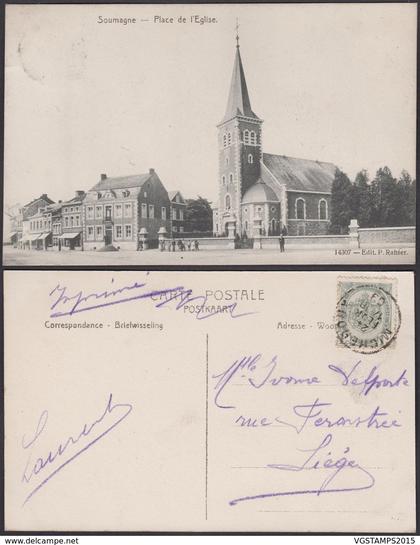 Soumagne — Place de l'Eglise.
14307 — Edit. P. Rahier.
Imprimé
CARTE POSTALE
POSTKAART
Correspondance - Briefwisseling
Adresse - Woo
Mlle Ivonne Delporte
rue
Liége
Laurent
VGSTAMPS2015